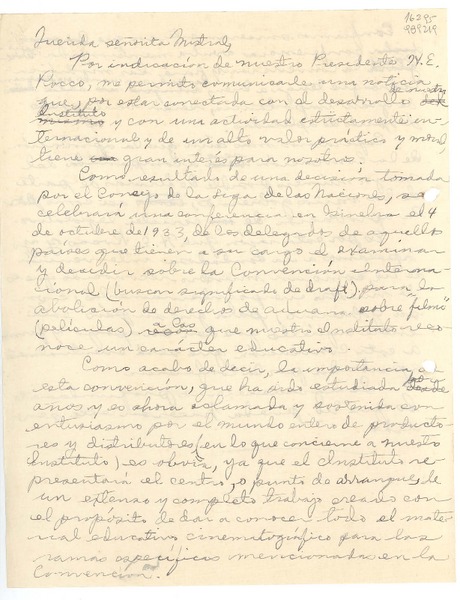 16295
999219
Querida señorita Mistral,
Por indicación de nuestro Presidente H.E.
Rocco, me permito comunicarle una noticia
que, por estar conectada con el desarrollo de nuestro
Instituto
y con una actividad estrictamente in-
ternacional y de un alto valor práctico y moral,
tiene gran interés para nosotros.
Como resultado de una decisión tomada
por el Concejo de la Liga de las Naciones, se
celebrará una conferencia en Ginebra el 4
de octubre de 1933, de los delegados de aquellos
países que tienen a su cargo el examinar
y decidir sobre la Convención interna-
cional (buscar significado de draft) para la
abolición de derechos de aduana sobre films
(películas) a las que nuestro Instituto reco-
noce un carácter educativo.
Como acabo de decir, la importancia de
esta convención, que ha sido estudiada por
años y es ahora aclamada y sostenida con
entusiasmo por el mundo entero de producto-
res y distribuidores (en lo que concierne a nuestro
Instituto) es obvia, ya que el Instituto re-
presentará el centro, o punto de arranque, de
un extenso y completo trabajo creado con
el propósito de dar a conocer todo el mate-
rial educativo cinematográfico para las
ramas específicas mencionadas en la
Convención.